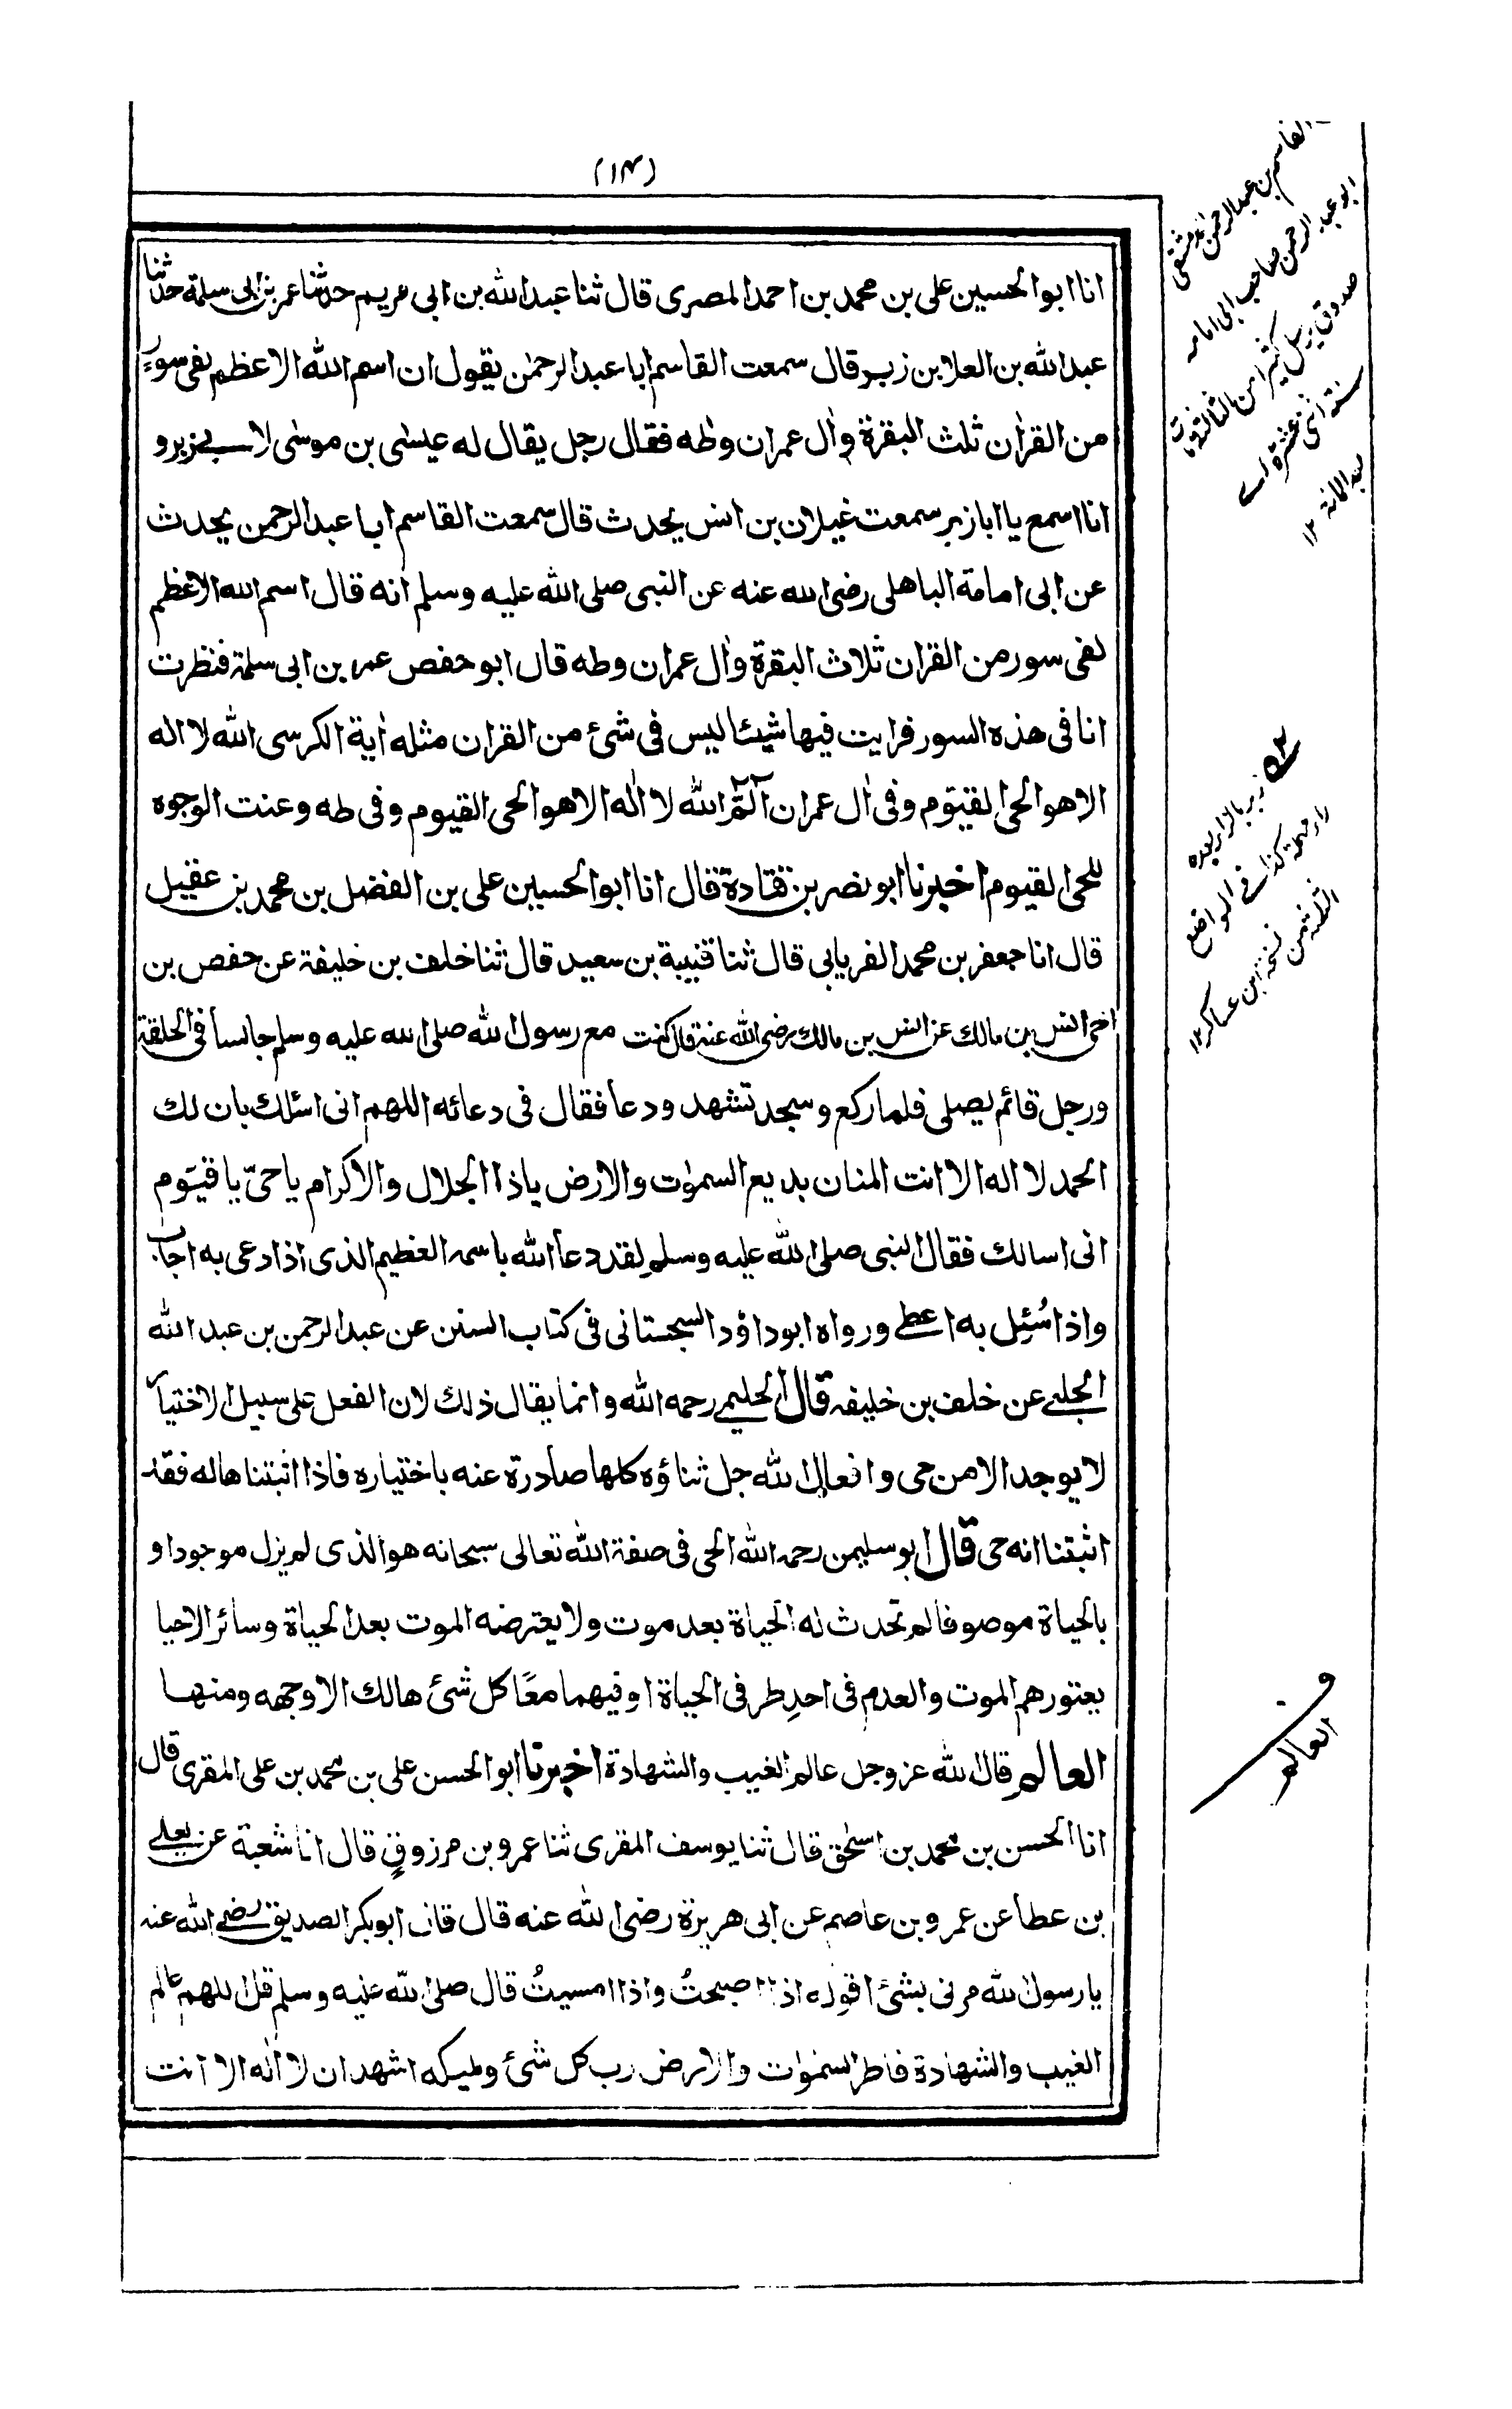 (١٤)
انا ابو الحسين على بن محمد بن احمد المصرى قال ثنا عبد الله بن ابى مريم حدثنا عمر بن ابى سلمة حدثنا
عبد الله بن العلا بن زبر قال سمعت القاسم ابا عبد الرحمٰن يقول ان اسم الله الاعظم لفى سور
من القراٰن ثلث البقرة واٰل عمران وطه فقال رجل يقال له عيسٰى بن موسٰى لابى زبر و
انا اسمع يا ابا زبر سمعت غيلان بن انس يحدث قال سمعت القاسم ابا عبد الرحمن يحدث
عن ابى امامة الباهلى رضى الله عنه عن النبى صلى الله عليه وسلم انه قال اسم الله الاعظم
لفى سور من القران ثلاث البقرة واٰل عمران وطه قال ابو حفص عمر بن ابى سلمة فنظرت
انا فى هذه السور فرايت فيها شيئا ليس فى شئ من القران مثله اٰية الكرسى الله لا اله
الا هو الحى القيوم وفى اٰل عمران الٓمّٓ الله لا اله الا هو الحى القيوم وفى طه وعنت الوجوه
للحى القيوم اخبرنا ابو نصر بن قتادة قال انا ابو الحسين على بن الفضل بن محمد بن عقيل
قال انا جعفر بن محمد الفريابى قال ثنا قتيبة بن سعيد قال ثنا خلف بن خليفة عن حفص بن
اخى انس بن مالك عن انس بن مالك رضى الله عنه قال كنت مع رسول الله صلى الله عليه وسلم جالسا فى الحلقة
ورجل قائم يصلى فلما ركع وسجد تشهد ودعا فقال فى دعائه اللهم انى اسئلك بان لك
الحمد لا اله الا انت المنان بديع السمٰوٰت والارض ياذا الجلال والاكرام يا حىّ يا قيّوم
انى اسالك فقال النبى صلى الله عليه وسلم لقد دعا الله باسمه العظيم الذى اذا دعى به اجاب
واذا سُئِل به اعطى ورواه ابو داؤد السجستانى فى كتاب السنن عن عبد الرحمن بن عبد الله
الحلبى عن خلف بن خليفه قال الحليمى رحمه الله وانما يقال ذلك لان الفعل على سبيل الاختيار
لا يوجد الا من حى وافعال الله جل ثناؤه كلها صادرة عنه باختياره فاذا اثبتناها له فقد
اثبتنا انه حى قال ابو سليمن رحمه الله الحى فى صفة الله تعالى سبحانه هو الذى لم يزل موجودا و
بالحياة موصوفا لم تحدث له الحياة بعد موت ولا يعترضه الموت بعد الحياة وسائر الاحيا
يعتورهم الموت والعدم فى احد طرفى الحياة او فيهما معًا كل شئ هالك الا وجهه ومنها
العالم قال الله عز وجل عالم الغيب والشهادة اخبرنا ابو الحسن على بن محمد بن على المقرى قال
انا الحسن بن محمد بن اسحٰق قال ثنا يوسف المقرى ثنا عمرو بن مرزوق قال انا شعبة عن يعلى
بن عطا عن عمرو بن عاصم عن ابى هريرة رضى الله عنه قال قال ابو بكر الصديق رضى الله عنه
يا رسول الله مرنى بشئ اقوله اذا اصبحتُ واذا امسيتُ قال صلى الله عليه وسلم قل اللهم عالم
الغيب والشهادة فاطر السمٰوات والارض رب كل شئ ومليكه اشهد ان لا اله الا انت
القاسم بن عبد الرحمن الدمشقى
ابو عبد الرحمن صاحب ابى امامه
صدوق يرسل كثيرا من الثالثة مات
سنة اثنتى عشرة
بعد المائة ١٢
زبر بالزا بعده
راء مهملة كذا فى المواضع
الثلثة من
نسخة ابن عساكر ١٢
العالم